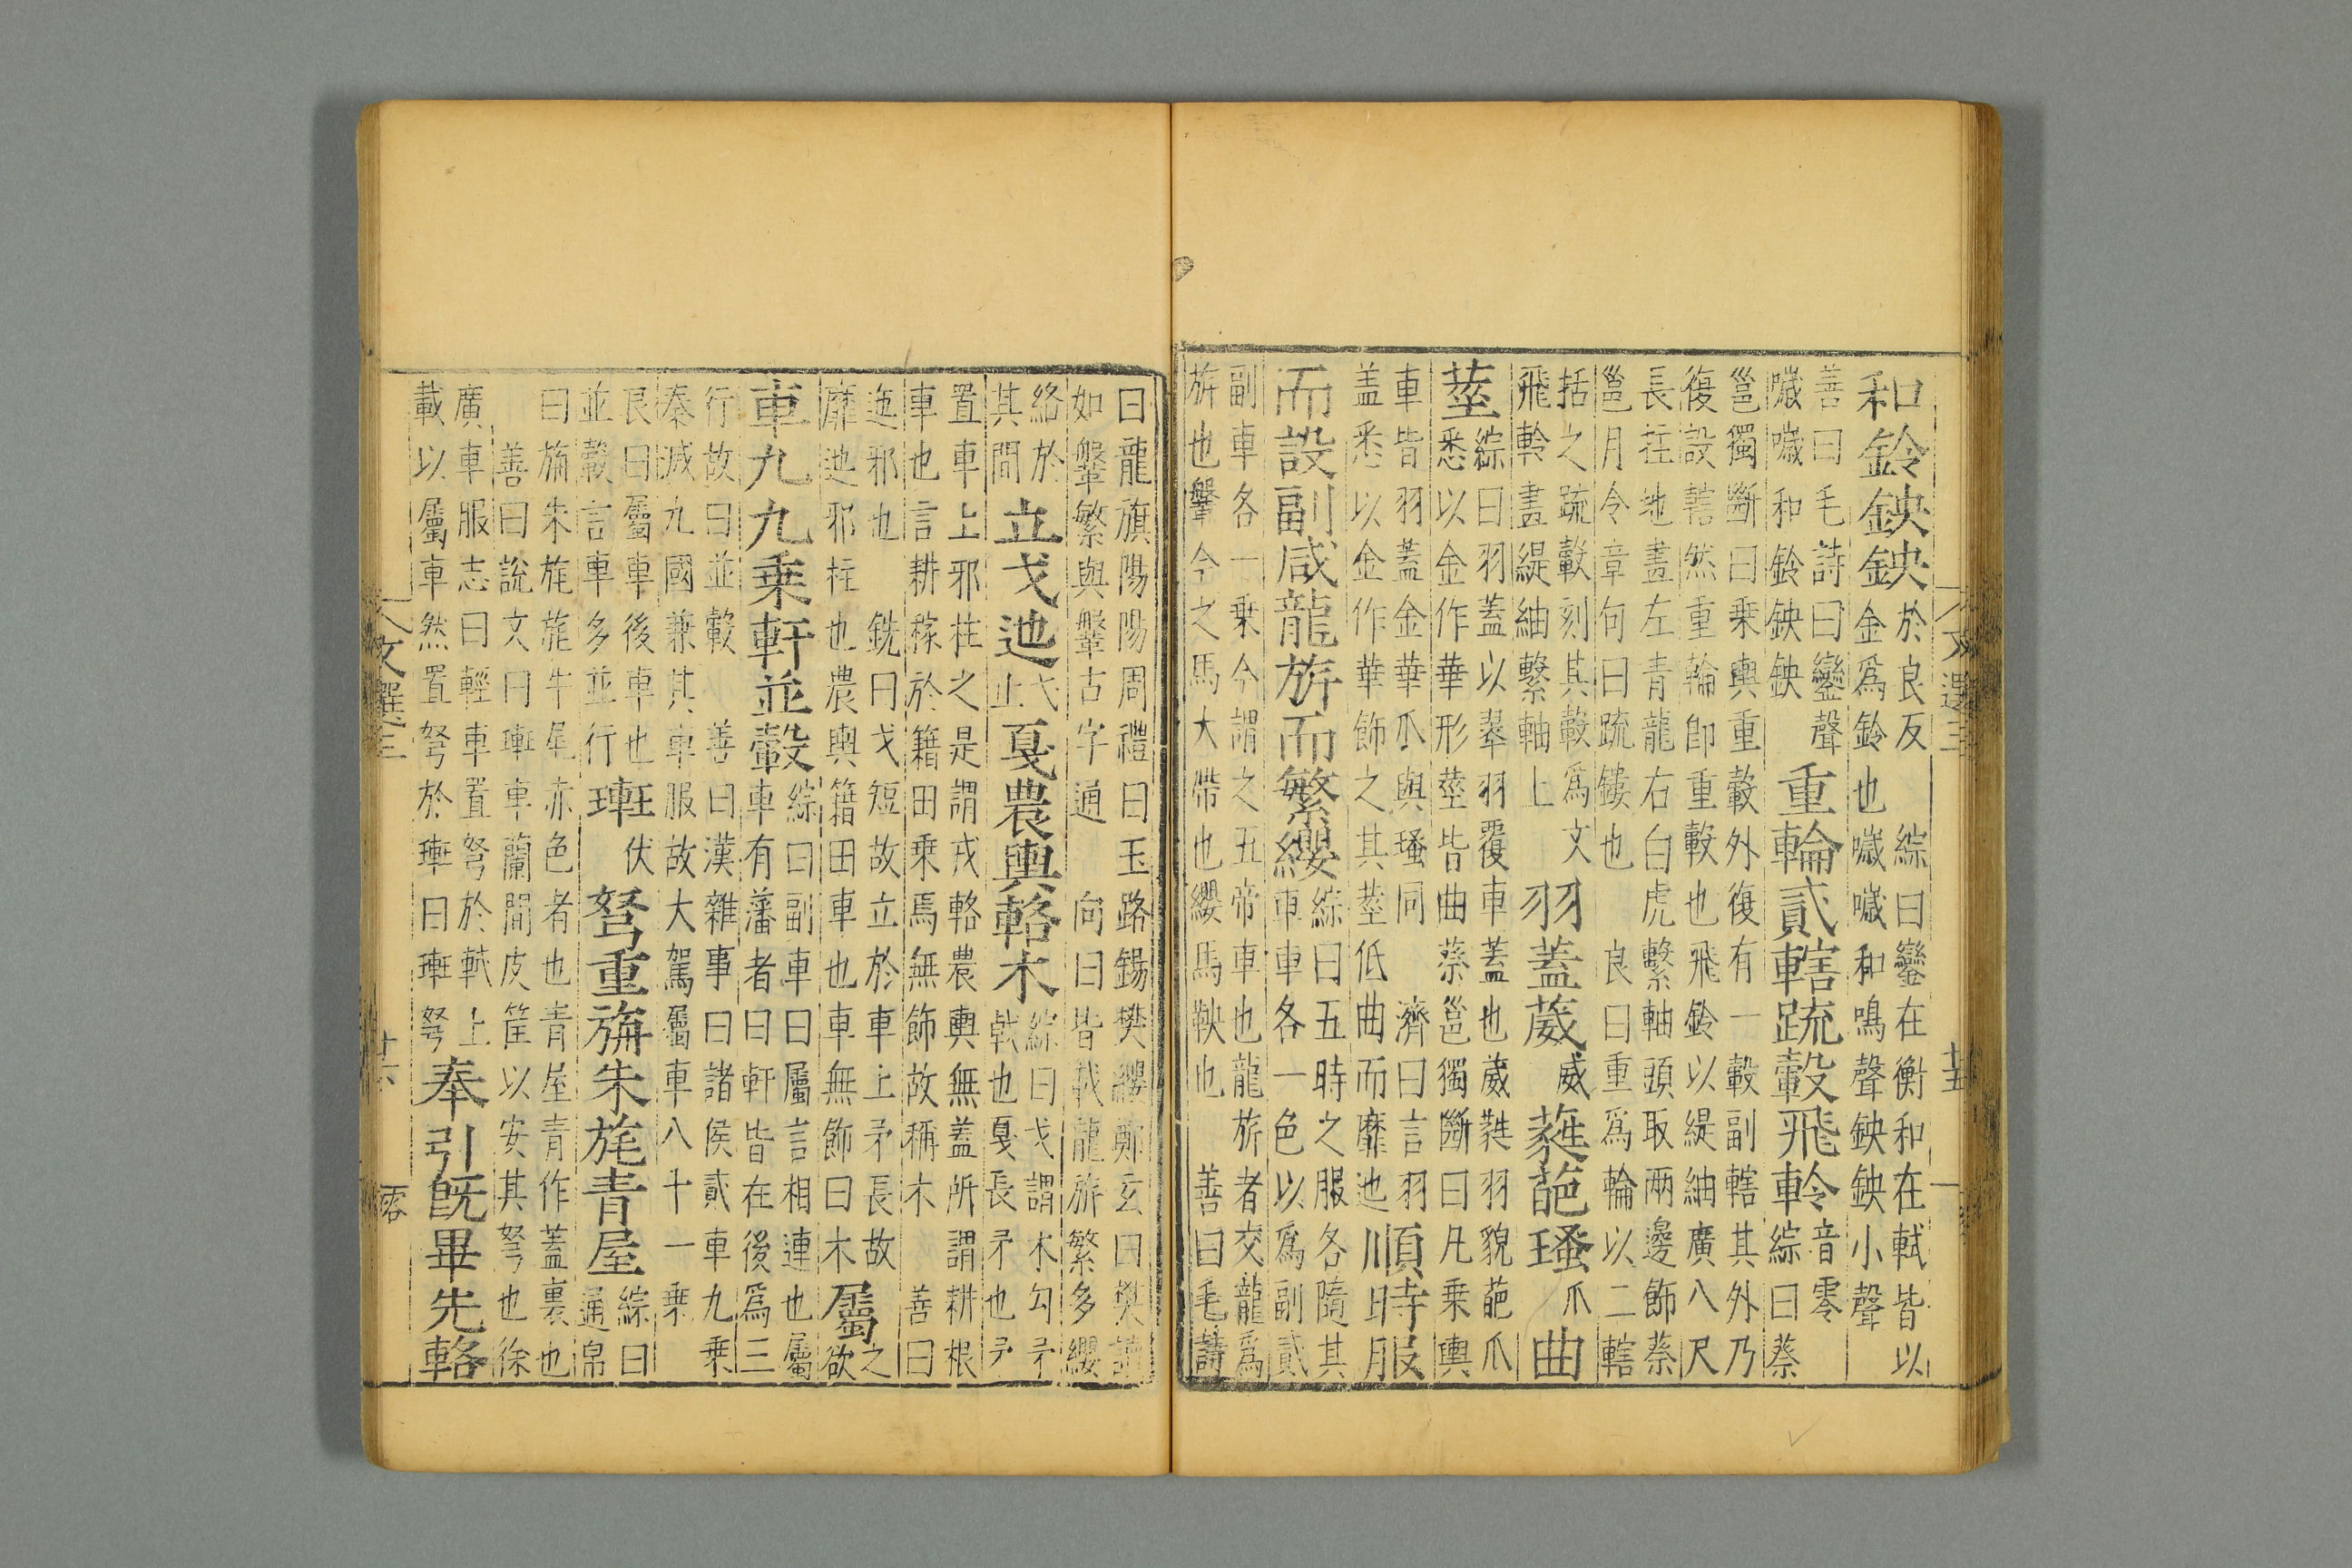 文選三 廿五
和鈴鉠鉠
於良反 綜曰鑾在衡和在軾皆以
金爲鈴也噦噦和鳴聲鉠鉠小聲
善曰毛詩曰鑾聲
噦噦和鈴鉠鉠
重輪貳轄疏轂飛軨
音零
綜曰蔡
邕獨斷曰乘輿重轂外復有一轂副轄其外乃
復設轄然重輪即重轂也飛鈴以緹紬廣八尺
長拄地畫左青龍右白虎繫軸頭取兩邊飾蔡
邕月令章句曰疏鏤也 良曰重爲輪以二轄
括之疏轂刻其轂爲文
飛軨畫緹紬繫軸上
羽蓋葳威蕤葩瑵爪曲
莖
綜曰羽蓋以翠羽覆車蓋也葳蕤羽貌葩爪
悉以金作華形莖皆曲蔡邕獨斷曰凡乘輿
車皆羽蓋金華爪與瑵同 濟曰言羽
盖悉以金作華飾之其莖低曲而靡迆
順時服
而設副咸龍旂而繁纓
綜曰五時之服各隨其
車車各一色以爲副貳
副車各一乘今謂之五帝車也龍旂者交龍爲
旂也鞶今之馬大帶也纓馬鞅也 善曰毛詩
曰龍旗陽陽周禮曰玉路錫樊纓鄭玄曰樊讀
如鞶繁與鞶古字通 向曰皆載龍旂繁多纓
絡於
其間
立戈迆弋止戛農輿輅木
綜曰戈謂木勾矛
戟也戛長矛也矛
置車上邪柱之是謂戎輅農輿無蓋所謂耕根
車也言耕稼於籍田乘馬無飾故稱木 善曰
迤邪也 銑曰戈短故立於車上矛長故
靡迆邪柱也農輿籍田車也車無飾曰木
屬之欲
車九九乘軒並轂
綜曰副車曰屬言相連也屬
車有藩者曰軒皆在後爲三
行故曰並轂 善曰漢雜事曰諸侯貳車九乘
秦滅九國兼其車服故大駕屬車八十一乘
良曰屬車後車也
並轂言車多並行
㻱伏弩重旃朱旄青屋
綜曰
通帛
曰旃朱旄旄牛尾赤色者也青屋青作蓋裏也
善曰說文曰㻱車蘭間皮筐以安其弩也徐
廣車服志曰輕車置弩於軾上
載以屬車然置弩於㻱曰㻱弩
奉引既畢先輅
文選三 廿六